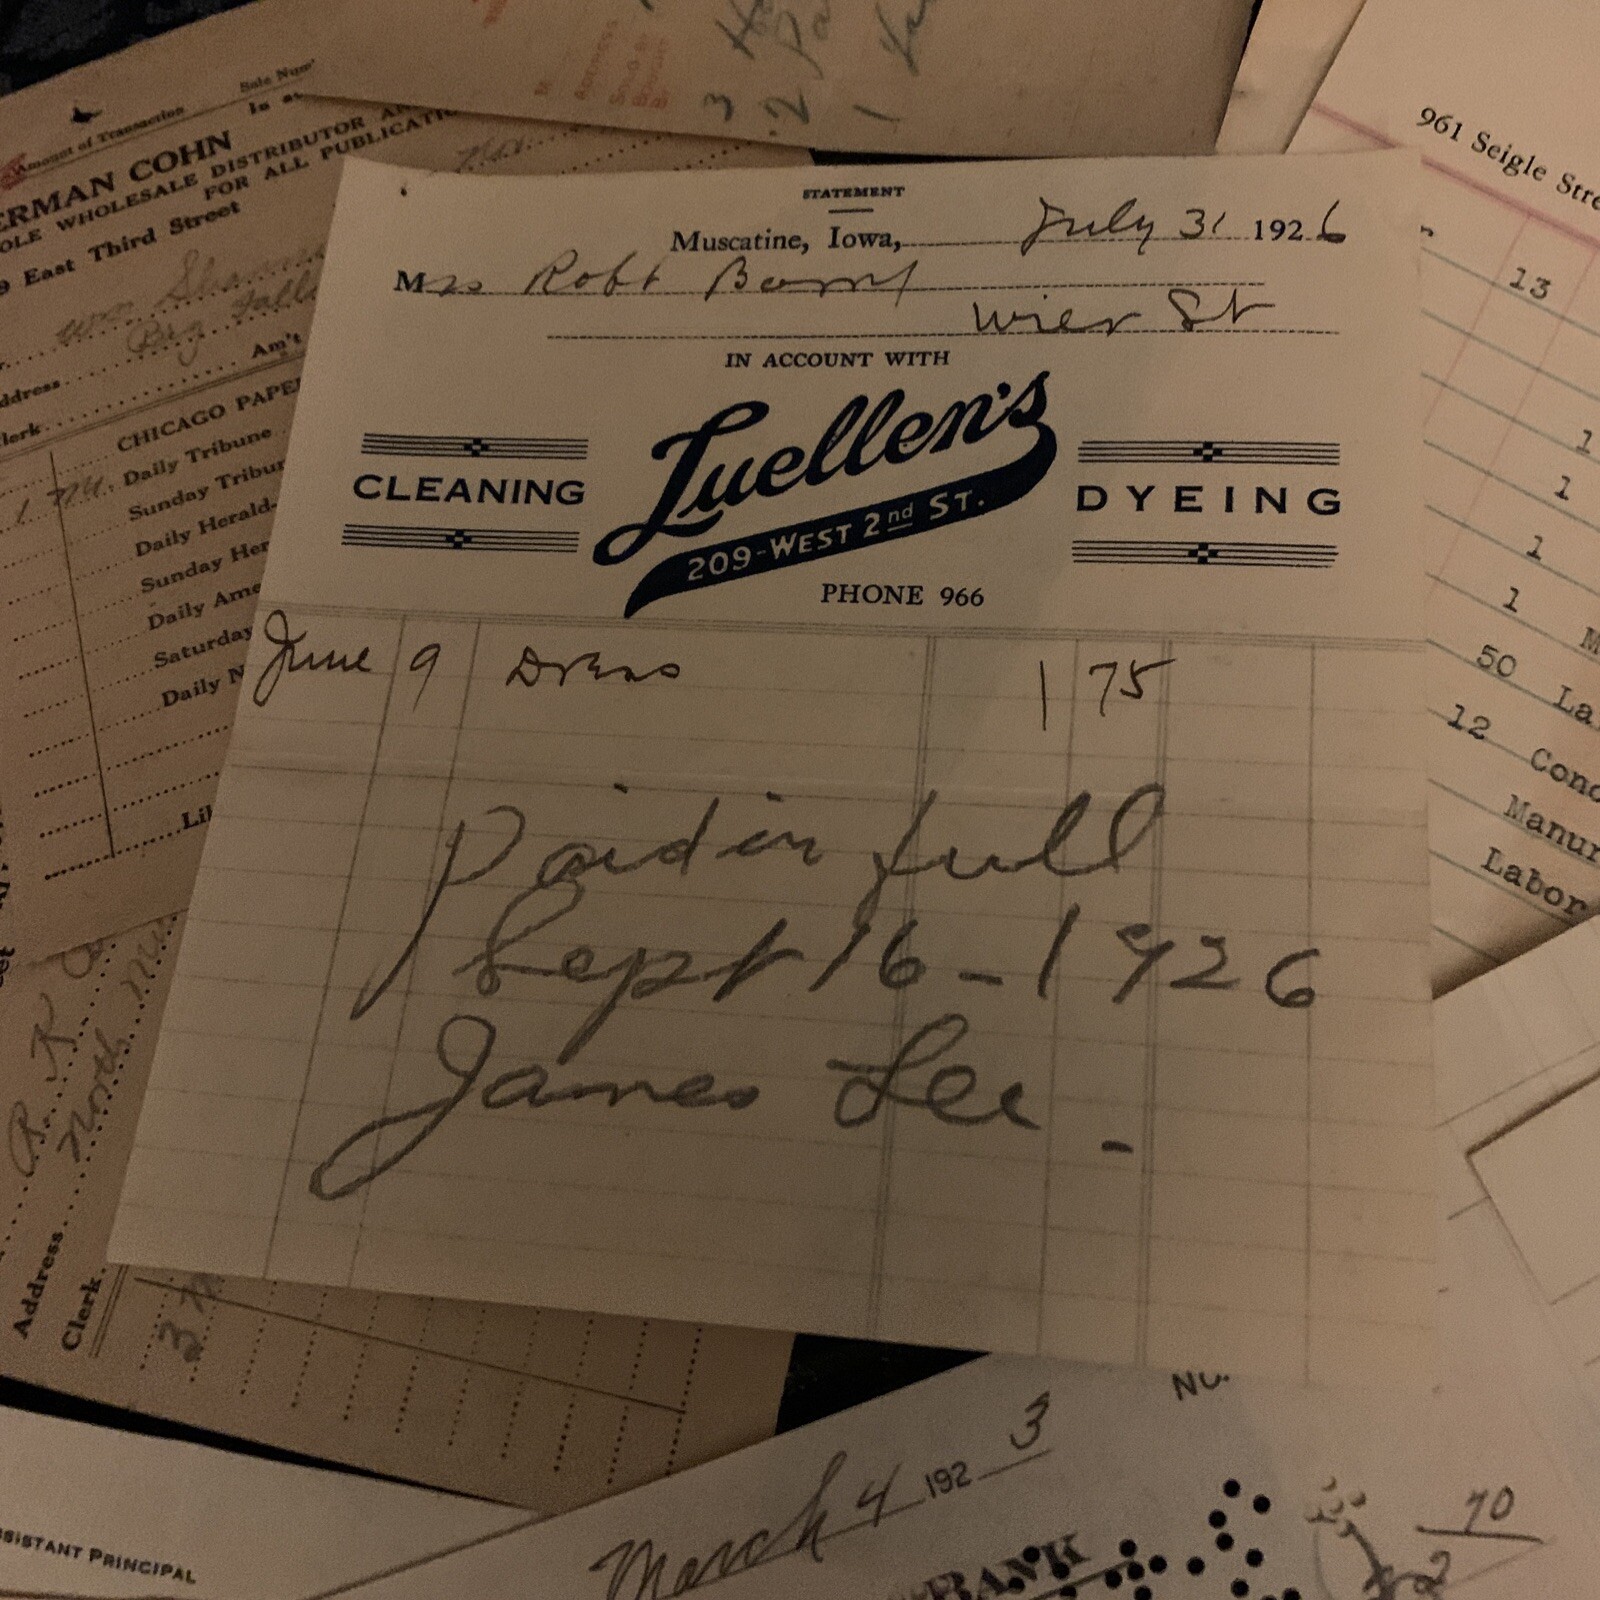 STATEMENT
Muscatine, Iowa, July 31 1926
Mrs Robt
Wier St
IN ACCOUNT WITH
Luellen's
CLEANING
DYEING
209-WEST 2nd ST.
PHONE 966
June 9 Dress 1 75
Paid in full
Sept 16-1926
James Lee -
Amount of Transaction
ERMAN COHN
OLE WHOLESALE DISTRIBUTOR
FOR ALL PUBLICATIO
9 East Third Street
Wm
Big Falls
ddress
Am't
lerk
CHICAGO PAPE
Daily Tribune
Sunday Tribu
1
Daily Herald-
Sunday Her
Daily Ame
Saturday
Daily N
Li
3
2
1
961 Seigle Stre
13
1
1
1
1 M
50 La
12 Conc
Manur
Labor
R. R
North
Address
Clerk
37
SSISTANT PRINCIPAL
No.
March 4 1923
BANK
70
2